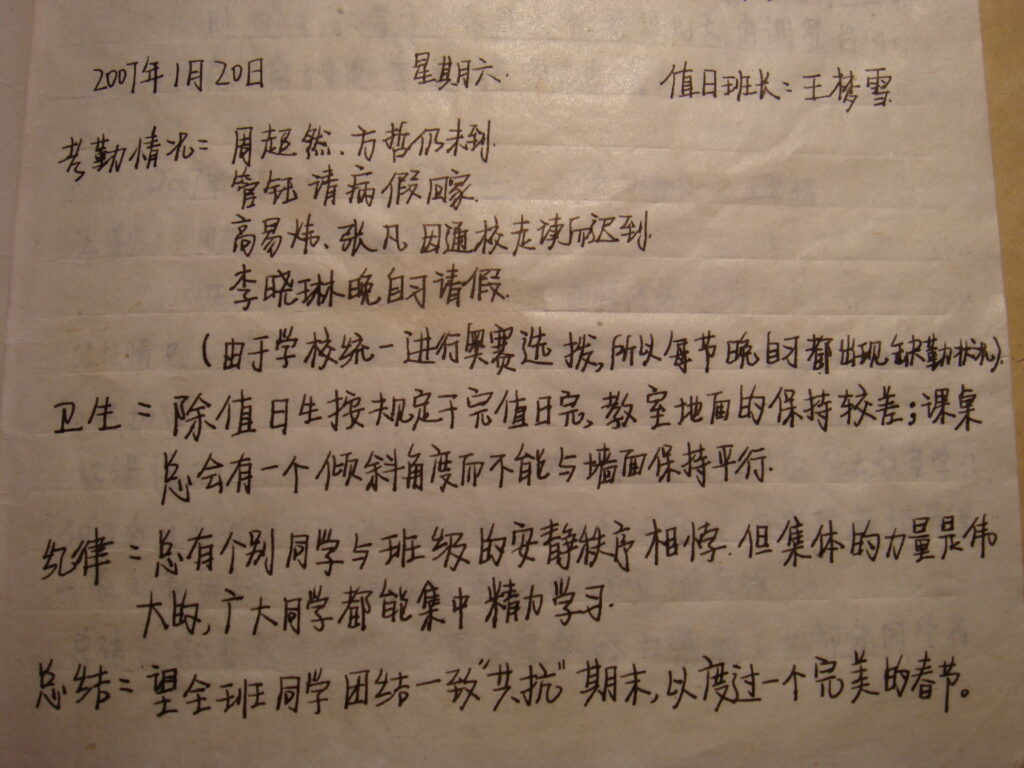 2007年1月20日 星期六. 值日班长：王梦雪
考勤情况：周超然、方哲仍未到.
管钰请病假回家.
高易炜、张凡因通校走读而迟到.
李晓琳晚自习请假.
（由于学校统一进行奥赛选拨，所以每节晚自习都出现缺勤状况）.
卫生：除值日生按规定干完值日完，教室地面的保持较差；课桌
总会有一个倾斜角度而不能与墙面保持平行.
纪律：总有个别同学与班级的安静秩序相悖.但集体的力量是伟
大的，广大同学都能集中精力学习.
总结：望全班同学团结一致“共抗”期末，以度过一个完美的春节。